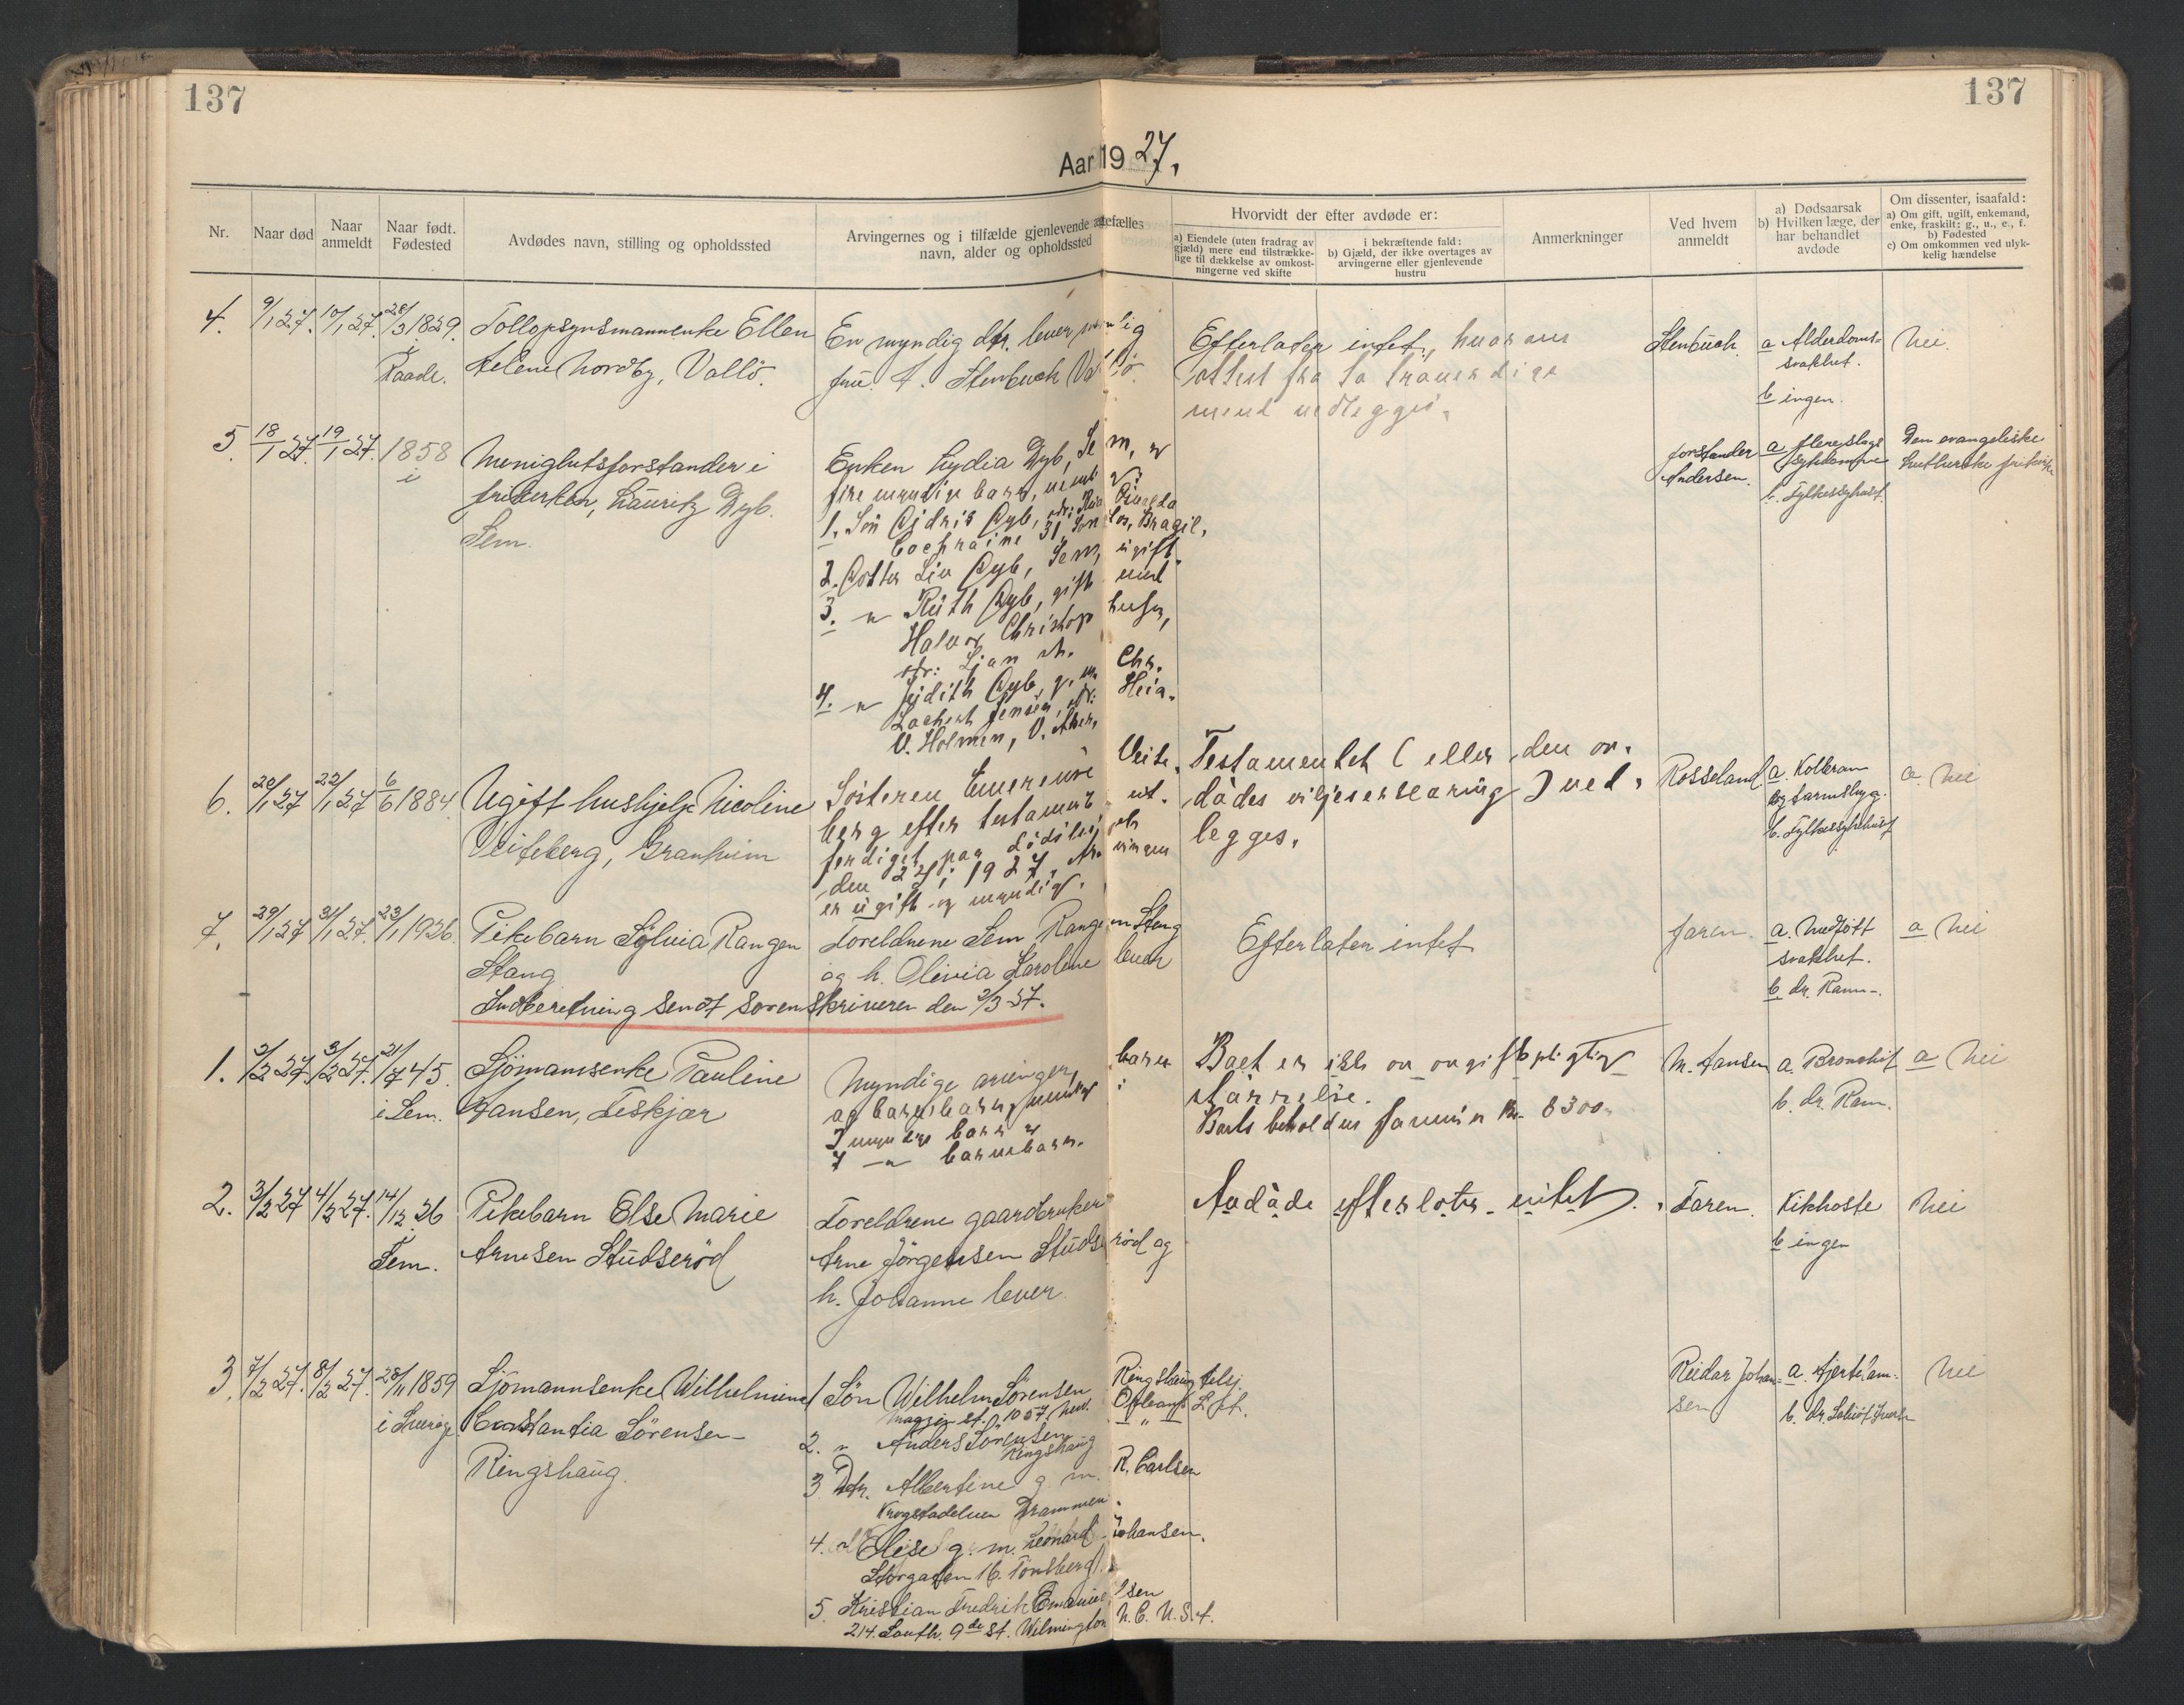 137
137
Aar 1927.
Nr.
Naar død
Naar anmeldt
Naar født. Fødested
Avdødes navn, stilling og opholdssted
Arvingernes og i tilfælde gjenlevende ægtefælles
navn, alder og opholdssted
Hvorvidt der efter avdøde er:
a) Eiendele (uten fradrag av
gjæld) mere end tilstrække-
lige til dækkelse av omkost-
ningerne ved skifte
i bekræftende fald:
b) Gjæld, der ikke overtages av
arvingerne eller gjenlevende
hustru
Anmerkninger
Ved hvem
anmeldt
a) Dødsaarsak
b) Hvilken læge, der
har behandlet
avdøde
Om dissenter, isaafald:
a) Om gift, ugift, enkemand,
enke, fraskilt: g., u., e., f.
b) Fødested
c) Om omkommen ved ulyk-
kelig hændelse
4. 9/1 27. 10/1 27. 28/3 1829.
Raade.
Tollopsynsmannenke Ellen
Helene Nordby, Vallö.
En myndig dtr. lever nemlig
fru A. Stenbuch Vallö.
Efterlater intet, hvorom
attest fra to troverdige
mend vedlegges.
Stenbuch.
a Alderdoms-
svakhet.
b ingen.
Nei.
5. 18/1 27. 19/1 27. 1858
i
Menighetsforstander i
frikirken, Lauritz Dyb.
Sem.
Enken Lydia Dyb, Sem, og
fire myndige barn, nemlig:
1. Sön Didrik Dyb, adr:
Cochraine 31, Santos, Brasil,
2. Datter Liv Dyb, Sem, ugift.
3. " Ruth Dyb, gift med
Halvor Christophersen,
adr: Ljan st.
4. " Judith Dyb, g. m. Chr.
Jensen, adr: Heia.
V. Holmen, V. Aker.
forstander
Andersen.
a flereslags
sykdomme
b. Fylkessykehuset
Den evangeliske
lutherske frikirke
6. 20/1 27 22/1 27 6/6 1884.
Ugift hushjelp Nicoline
Veiteberg, Granheim
Sösteren Emerense Veite-
berg efter testament ut-
ferdiget paa dödsleiet
den 1927. Arvingen
er ugift og myndig.
Testamentet (eller den av-
dödes viljeserklæring) ved-
legges.
Rosseland
a. Kolbran
og tarmslyng.
b. Fylkessykehuset
a. Nei
7. 29/1 27 31/1 27. 23/1 1926.
Pikebarn Sylvia Rangen
Stang
Foreldrene Sem Rangen Stang
og h. Olivia Karoline lever
Efterlater intet
faren.
a. Medfött
svakhet.
b dr. Ramm.
a Nei
Indberetning sendt sorenskriveren den 2/3 27.
1. 2/2 27. 3/2 27. 21/7 45.
i Sem.
Sjömannsenke Pauline
Hansen, Feskjær
Myndige arvinger, barn
og barnebarn, nemlig:
3 myndige barn og
7 " barnebarn.
Boet er ikke av avgiftspligtig
störrelse.
Boets beholdne formue Kr. 8300.
M. Hansen
a. Bronchit
b. dr. Ramm.
a Nei
2. 3/2 27 4/2 27. 14/12 26
Sem.
Pikebarn Else Marie
Arnesen Studseröd
Foreldrene gaardbruker
Arne Jörgensen Studseröd og
h. Johanne lever.
Avdöde efterlater intet.
Faren.
Kikhoste
b ingen
Nei
3. 7/2 27. 8/2 27. 28/11 1859
i Sverige
Sjömannsenke Wilhelmine
Constantia Sörensen
Ringshaug.
1 Sön Wilhelm Sörensen Ringshaug
Magzin st. 1057. New Orleans
2. " Anders Sörensen
Ringshaug
3 Dtr. Albertine g. m. R. Carlsen
Krogstadelven Drammen.
4. " Elise g. m. Leonard Johansen.
Storgaten 16. Tönsberg.
5. Kristian Fredrik Emanuelsen
214. South. 9de St. Wilmington N.C. U.S.A.
Reidar Johan-
sen
a. Hjertelam.
b. dr.
Nei